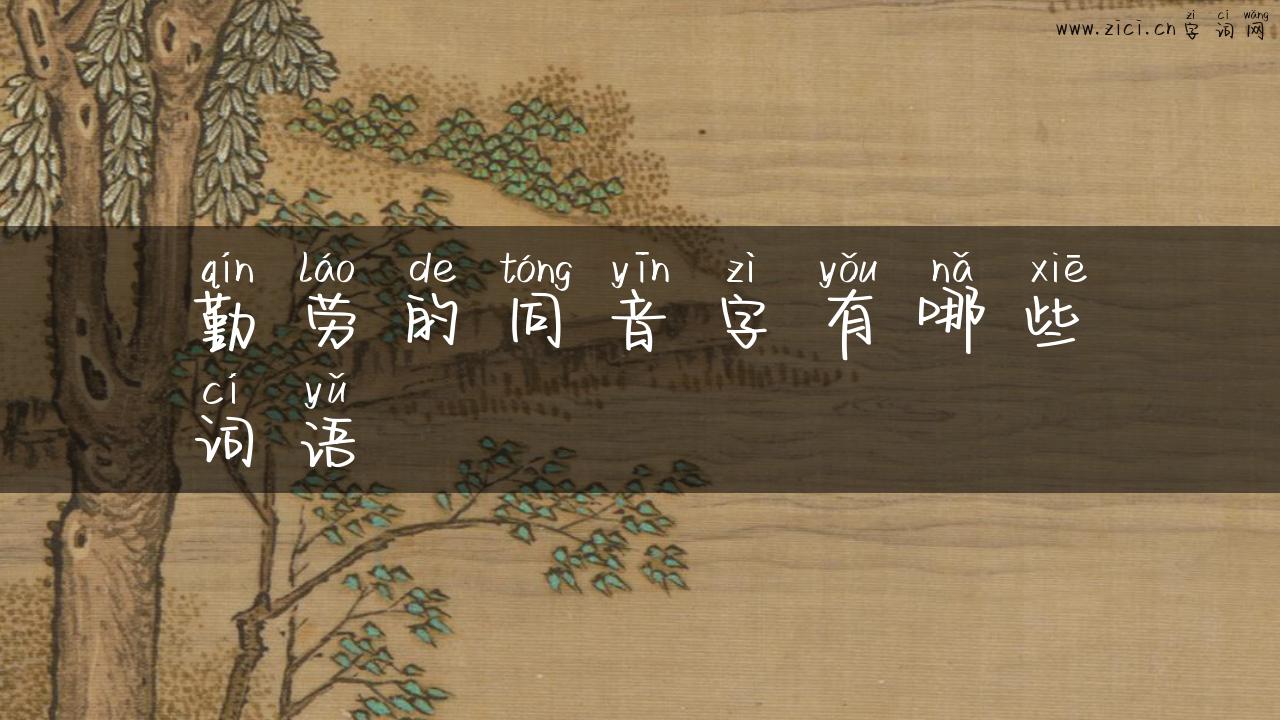 zì cí wǎng
www.zici.cn 字词网
qín láo de tóng yīn zì yǒu nǎ xiē
勤劳的同音字有哪些
cí yǔ
词语